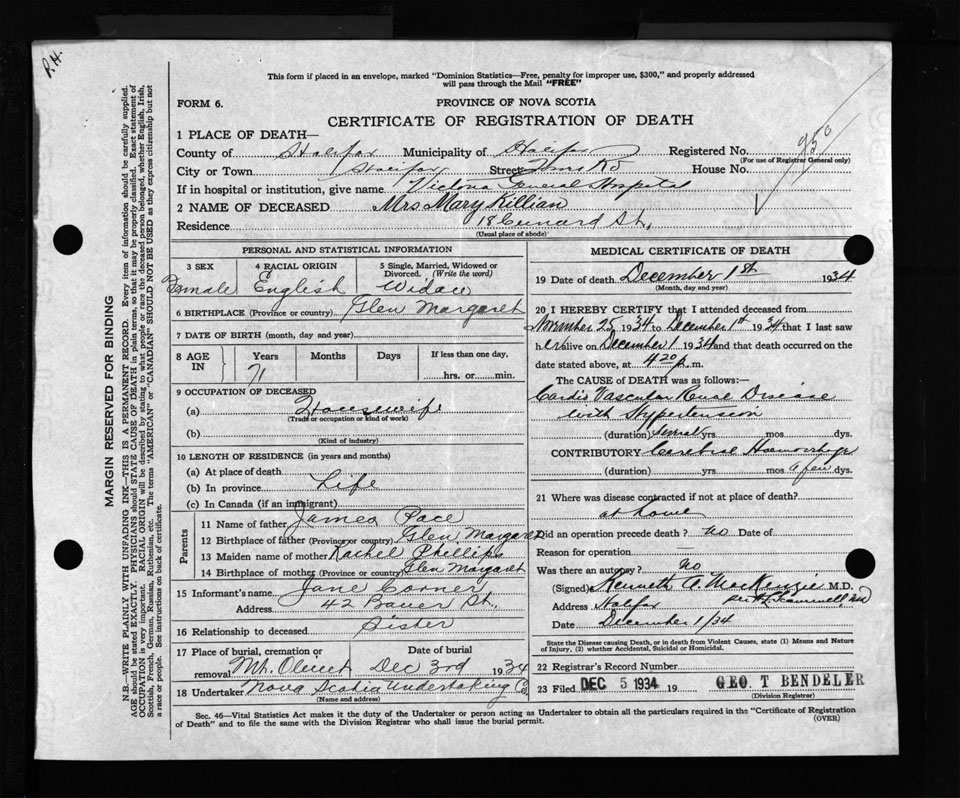 P.H.
This form if placed in an envelope, marked "Dominion Statistics—Free, penalty for improper use, $300," and properly addressed
will pass through the Mail "FREE"
FORM 6.
PROVINCE OF NOVA SCOTIA
CERTIFICATE OF REGISTRATION OF DEATH
950
1 PLACE OF DEATH—
County of Halifax Municipality of Halifax Registered No.
(For use of Registrar General only)
City or Town Halifax Street House No.
If in hospital or institution, give name Victoria General Hospital
2 NAME OF DECEASED Mrs Mary Killian
Residence 18 Cunard St.,
(Usual place of abode)
PERSONAL AND STATISTICAL INFORMATION
3 SEX 4 RACIAL ORIGIN 5 Single, Married, Widowed or Divorced. (Write the word)
Female English Widow
6 BIRTHPLACE (Province or country) Glen Margaret
7 DATE OF BIRTH (month, day and year)
8 AGE IN Years Months Days If less than one day,
71 hrs. or min.
9 OCCUPATION OF DECEASED
(a) Housewife
(Trade or occupation or kind of work)
(b)
(Kind of industry)
10 LENGTH OF RESIDENCE (in years and months)
(a) At place of death
(b) In province Life
(c) In Canada (if an immigrant)
Parents
11 Name of father James Pace
12 Birthplace of father (Province or country) Glen Margaret
13 Maiden name of mother Rachel Phillips
14 Birthplace of mother (Province or country) Glen Margaret
15 Informant's name Jane Corner
Address 42 Bauer St.,
16 Relationship to deceased Sister
17 Place of burial, cremation or removal Date of burial
Mt. Olivet Dec 3rd 1934
18 Undertaker Nova Scotia Undertaking Co.
(Name and address)
MEDICAL CERTIFICATE OF DEATH
19 Date of death December 1st 1934
(Month, day and year)
20 I HEREBY CERTIFY that I attended deceased from
November 25 1934 to December 1st 1934 that I last saw
her alive on December 1 1934 and that death occurred on the
date stated above, at 4 20 p. m.
The CAUSE OF DEATH was as follows:
Cardio Vascular Renal Disease
with Hypertension
(duration) Several yrs mos dys.
CONTRIBUTORY Cerebral Haemorrhage
(duration) yrs mos a few dys.
21 Where was disease contracted if not at place of death?
at home
Did an operation precede death? no Date of
Reason for operation —
Was there an autopsy? no
(Signed) Kenneth A. MacKenzie M.D.
Address Halifax per
Date December 1/34
State the Disease causing Death, or in death from Violent Causes, state (1) Means and Nature
of Injury, (2) whether Accidental, Suicidal or Homicidal.
22 Registrar's Record Number
23 Filed DEC 5 1934 19 GEO. T BENDELER
(Division Registrar)
Sec. 46—Vital Statistics Act makes it the duty of the Undertaker or person acting as Undertaker to obtain all the particulars required in the "Certificate of Registration
of Death" and to file the same with the Division Registrar who shall issue the burial permit.
(OVER)
MARGIN RESERVED FOR BINDING
N.B.—WRITE PLAINLY WITH UNFADING INK—THIS IS A PERMANENT RECORD. Every item of information should be carefully supplied.
AGE should be stated EXACTLY. PHYSICIANS should STATE CAUSE OF DEATH in plain terms, so that it may be properly classified. Exact statement of
OCCUPATION is very important. RACIAL ORIGIN will be described by stating to what people or race the deceased person belonged, whether English, Irish,
Scottish, French, German, Russian, Ruthenian, etc. The terms "AMERICAN" or "CANADIAN" SHOULD NOT BE USED as they express citizenship but not
a race or people. See instructions on back of certificate.